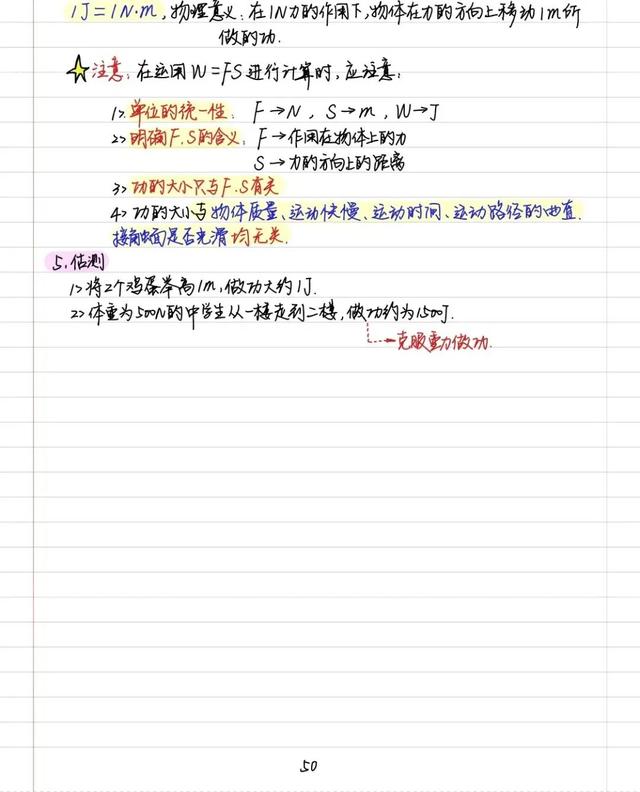 1J=1N·m,物理意义:在1N力的作用下,物体在力的方向上移动1m所
做的功.
注意:在运用W=FS进行计算时,应注意:
1>单位的统一性: F→N, S→m, W→J
2>明确F.S的含义: F→作用在物体上的力
S→力的方向上的距离
3>功的大小只与F.S有关
4>功的大小与物体质量、运动快慢、运动时间、运动路径的曲直.
接触面是否光滑均无关.
5.估测
1>将2个鸡蛋举高1m,做功大约1J.
2>体重为500N的中学生从一楼走到二楼,做功约为1500J.
克服重力做功.
50